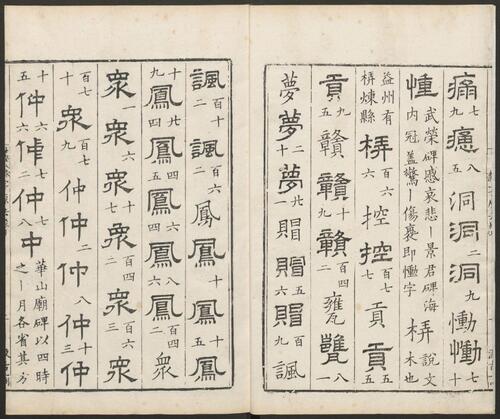 痛七九癋八五洞洞二洞九慟慟七十
憧武榮碑慼哀悲丨景君碑海內冠蓋驚丨傷裹即慟字梇說文木也
益州有梇棟縣梇百六控控百七貢貢百五
貢九五贛贛十九贛百四二甕甕八一
夢夢二十夢廿六賵賵五百賵百九諷
諷百十二諷百六二鳳鳳十五鳳
十九鳳廿四鳳四六鳳六四鳳百八鳳百四二衆
衆一衆六六衆十七衆百四二衆百三衆
百七十衆百七九仲仲二仲八十仲十三仲
十五仲六六仲七二仲八中華山廟碑以四時之丨月各省其方